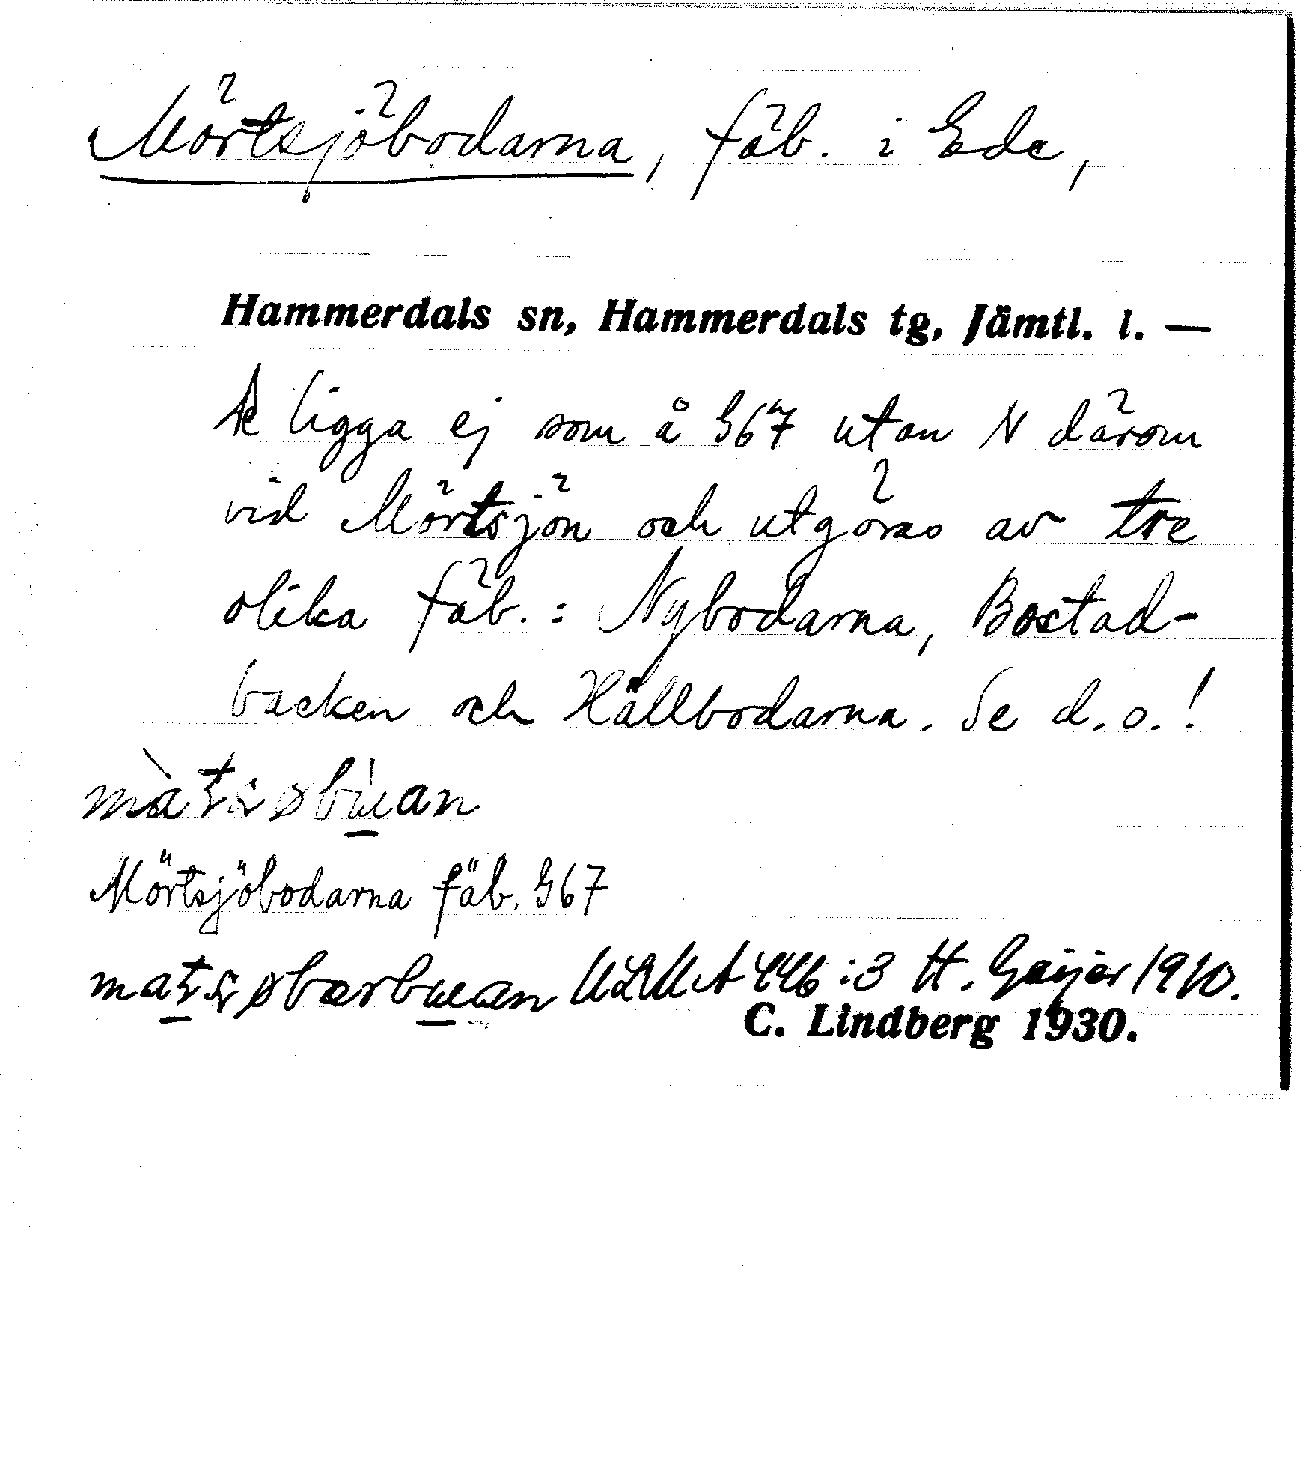 Mörtsjöbodarna, fäb. i Ede,
Hammerdals sn, Hammerdals tg, Jämtl. l. —
De ligga ej som å G67 utan N därom
vid Mörtsjön och utgöras av tre
olika fäb. : Nybodarna, Bostad-
backen och Hällbodarna. Se d. o. !
Mörtsjöbodarna fäb. G67
ULMA 446:3 H. Geijer 1910.
C. Lindberg 1930.